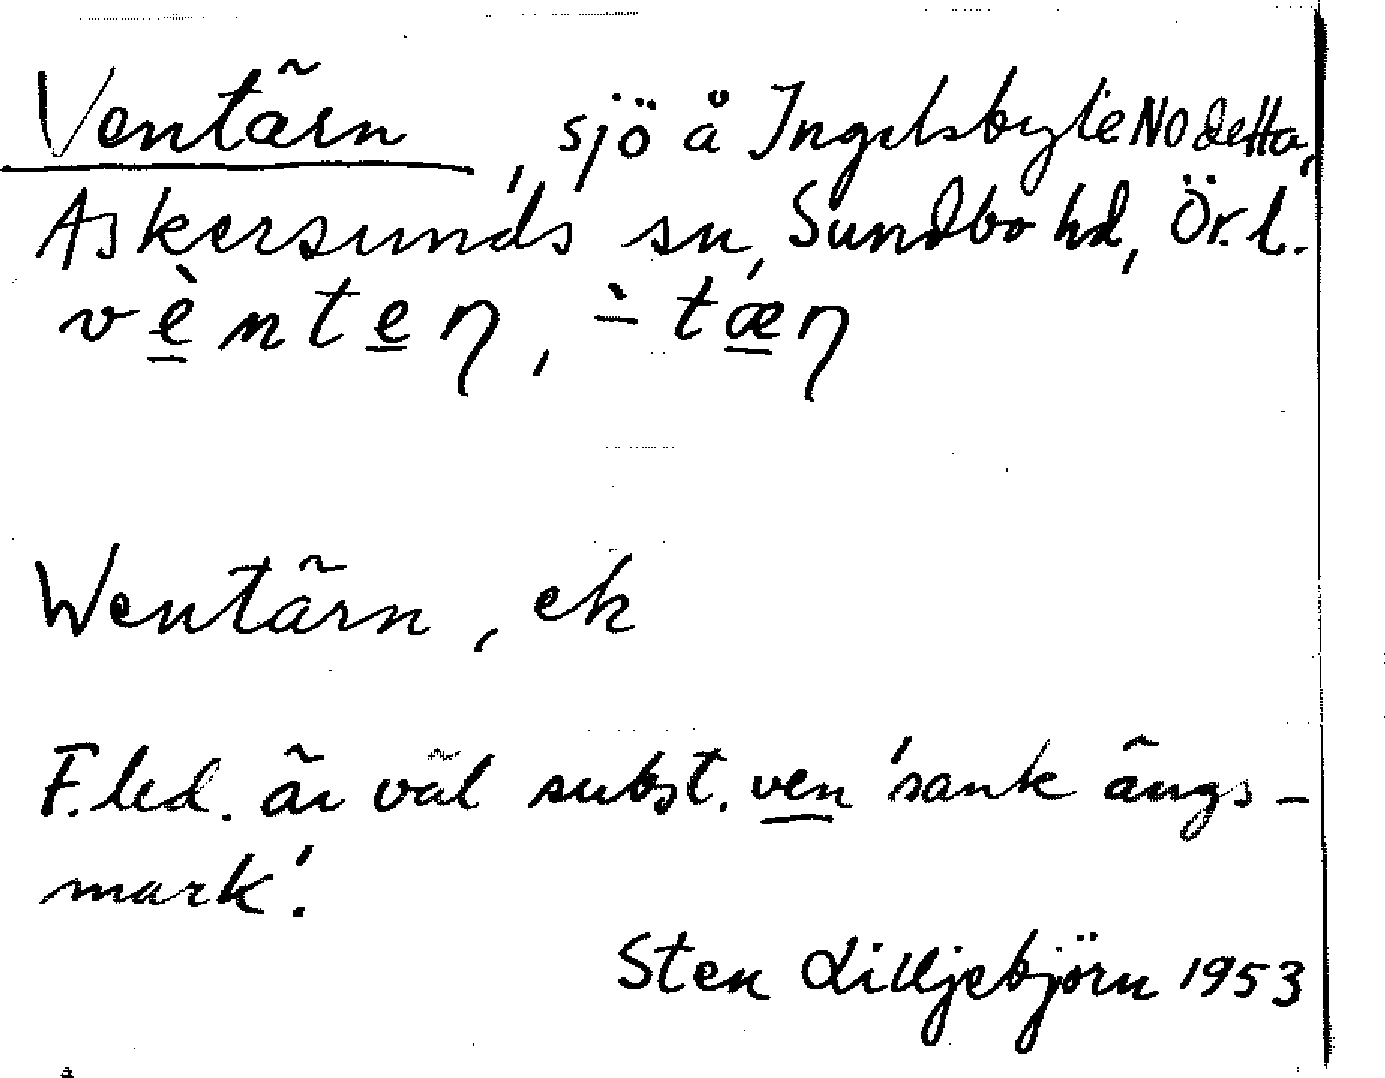 Ventärn, sjö å Ingelsby le NO detta,
Askersunds sn, Sundbo hd, Ör. l.
vè̱nte̱ƞ, -̀tæ̱ƞ
Wentärn, ek
F. led. är väl subst. ven 'sank ängs-
mark'.
Sten Lilljebjörn 1953